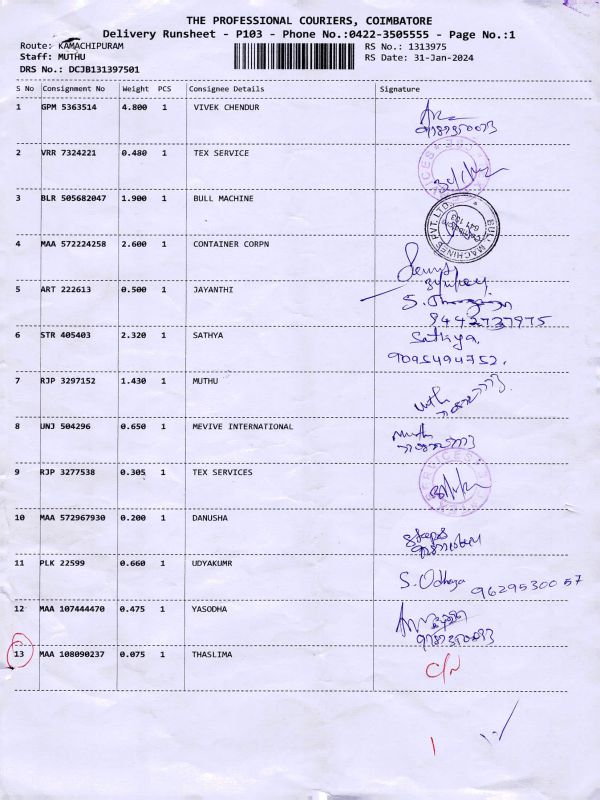 THE PROFESSIONAL COURIERS, COIMBATORE
Delivery Runsheet - P103 - Phone No.:0422-3505555 - Page No.:1
Route: KAMACHIPURAM RS No.: 1313975
Staff: MUTHU RS Date: 31-Jan-2024
DRS No.: DCJB131397501
S No Consignment No Weight PCS Consignee Details Signature
1 GPM 5363514 4.800 1 VIVEK CHENDUR
2 VRR 7324221 0.480 1 TEX SERVICE
3 BLR 505682047 1.900 1 BULL MACHINE
4 MAA 572224258 2.600 1 CONTAINER CORPN
5 ART 222613 0.500 1 JAYANTHI
9442737975
6 STR 405403 2.320 1 SATHYA Sathya.
9095494752.
7 RJP 3297152 1.430 1 MUTHU
8 UNJ 504296 0.650 1 MEVIVE INTERNATIONAL
9 RJP 3277538 0.305 1 TEX SERVICES
10 MAA 572967930 0.200 1 DANUSHA
11 PLK 22599 0.660 1 UDYAKUMR S. Odhaya 9629530057
12 MAA 107444470 0.475 1 YASODHA
13 MAA 108090237 0.075 1 THASLIMA C/N